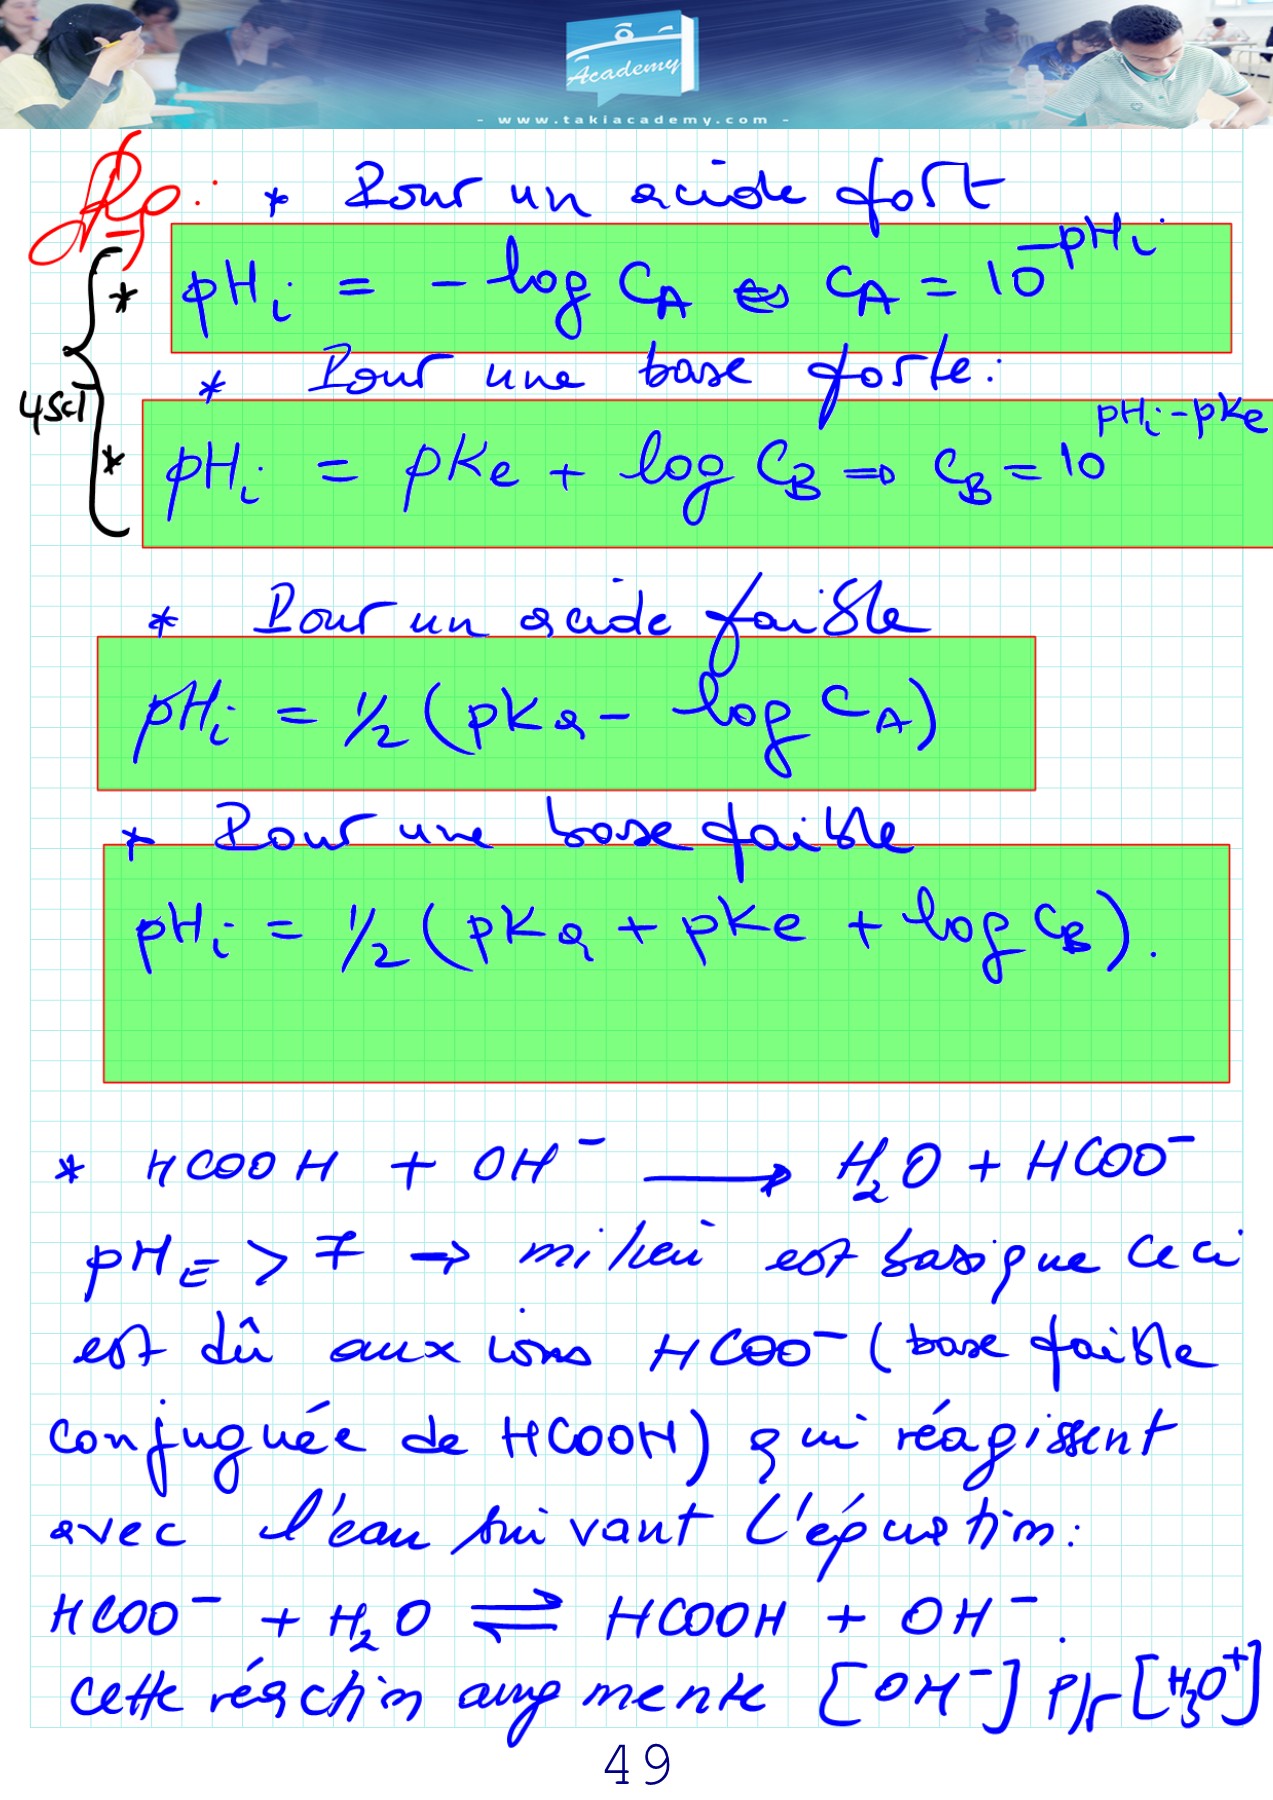 Academy
- www.takiacademy.com -
Rq : * Pour un acide fort
* pHi = - log CA ⇔ CA = 10^-pHi
* Pour une base forte :
4Sc1
* pHi = pKe + log CB ⇒ CB = 10^pHi-pKe
* Pour un acide faible
pHi = 1/2 (pKa - log CA)
* Pour une base faible
pHi = 1/2 (pKa + pKe + log CB).
* HCOOH + OH⁻ → H₂O + HCOO⁻
pHE > 7 → milieu est basique ceci
est dû aux ions HCOO⁻ (base faible
conjuguée de HCOOH) qui réagissent
avec l'eau suivant l'équation :
HCOO⁻ + H₂O ⇌ HCOOH + OH⁻.
cette réaction augmente [OH⁻] p/r [H₃O⁺]
49